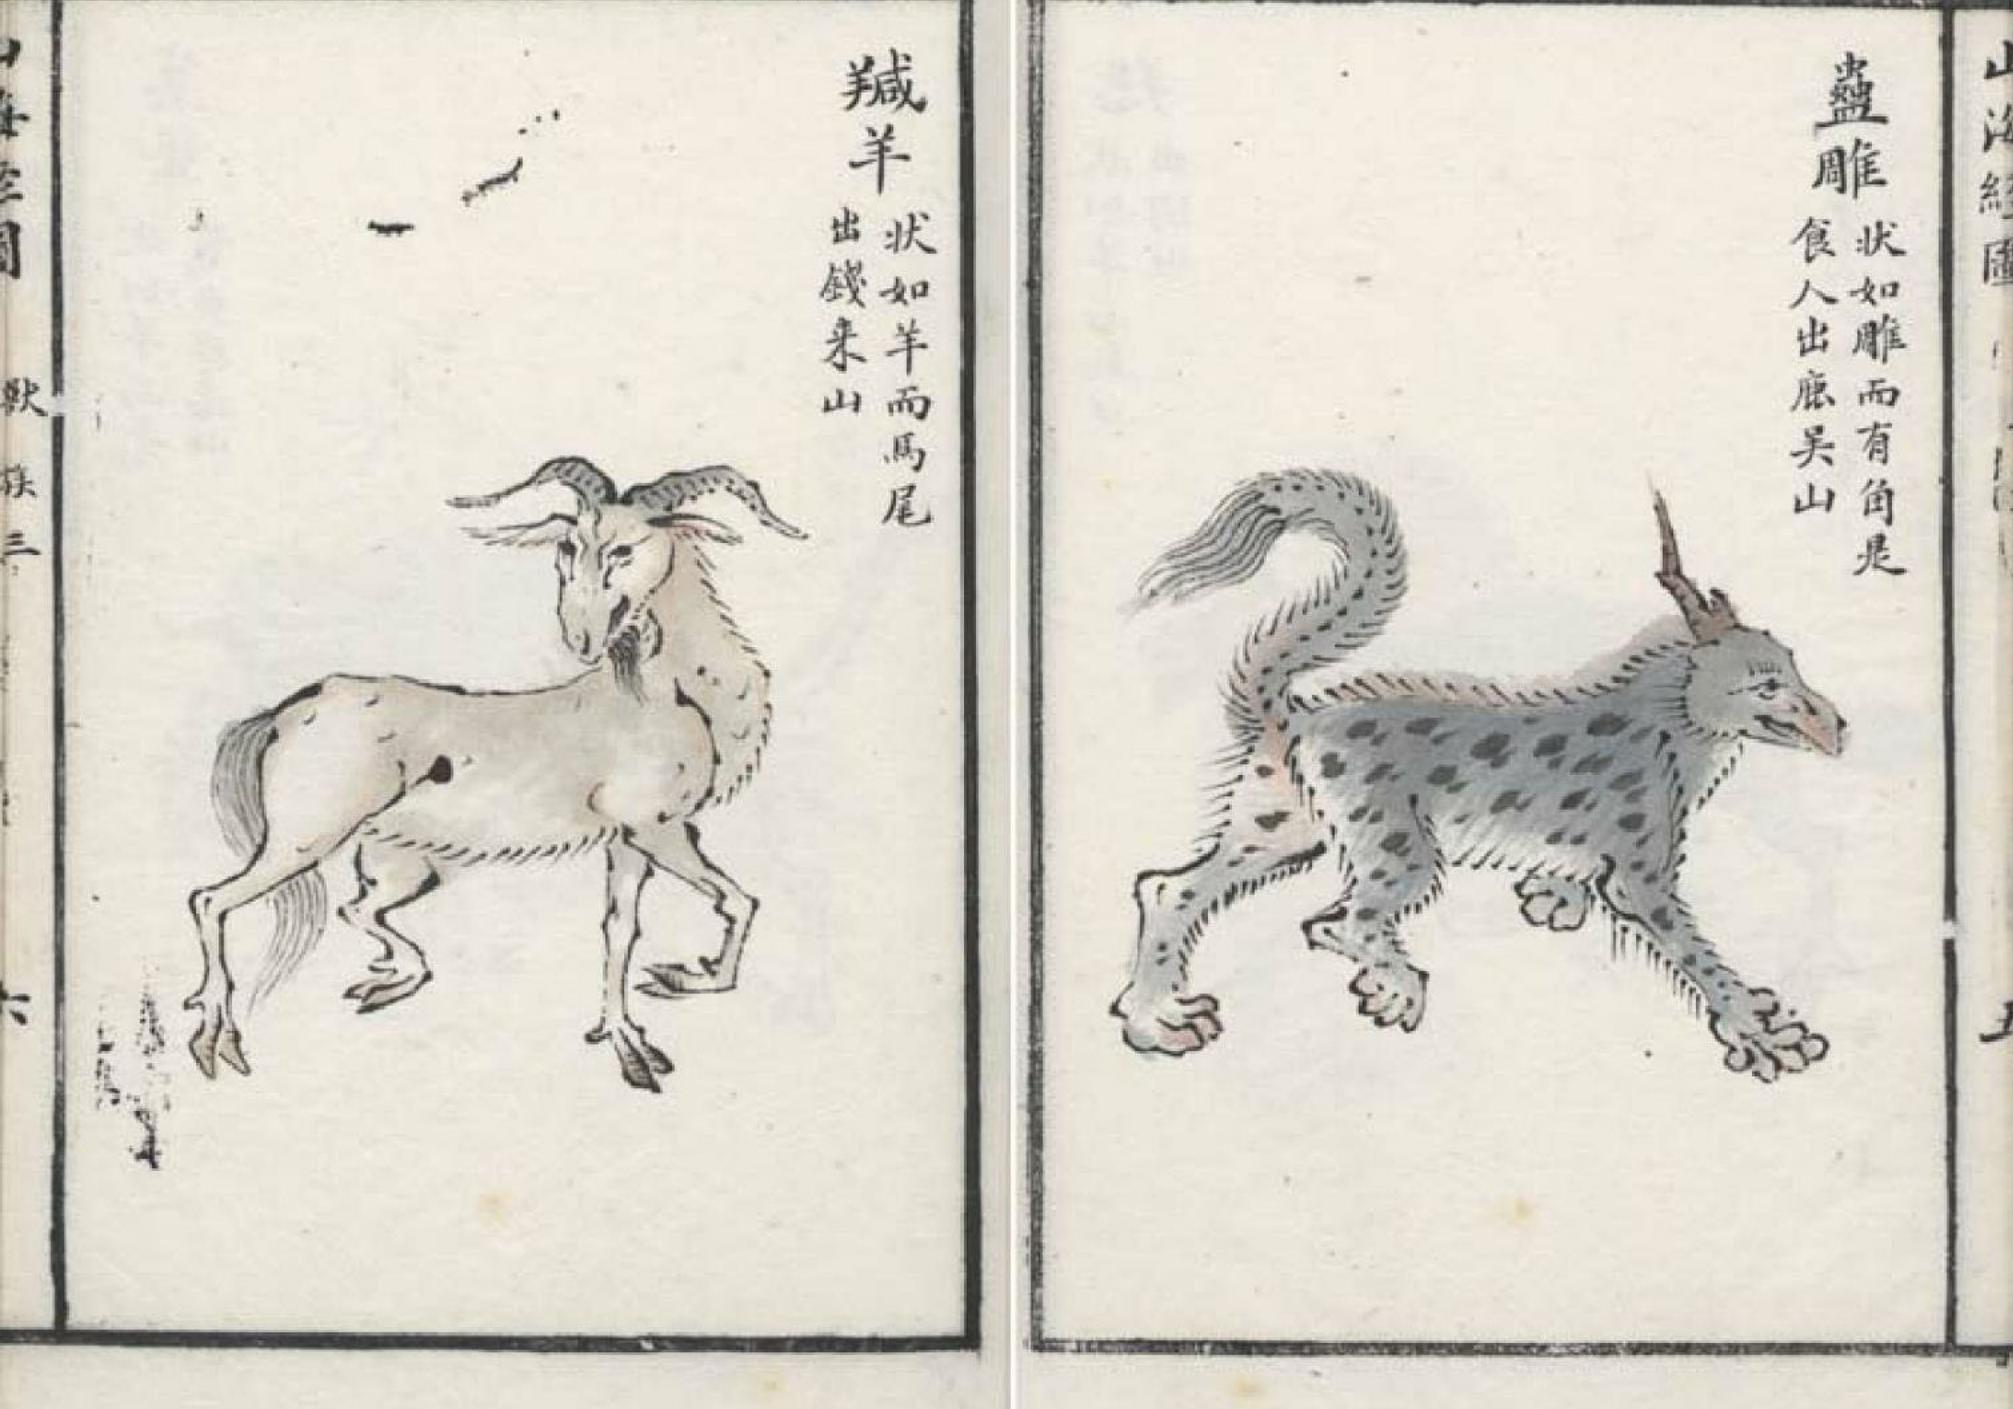 山海經圖
蠱雕
状如雕而有角是
食人出鹿吴山
羬羊
状如羊而馬尾
出錢来山
山海經圖
獸族三
六